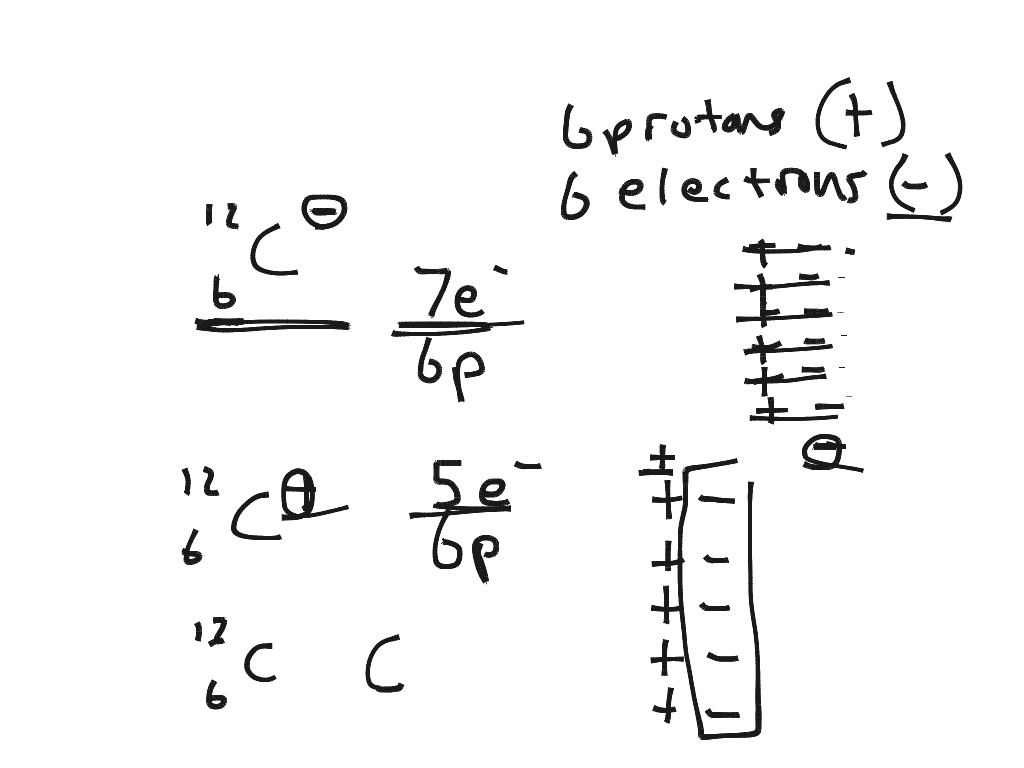 6 protons (+)
6 electrons (-)
12 C ⊖
6
7e-
6p
+ -
+ -
+ -
+ -
+ -
+ -
⊖
12 C ⊕
6
5e-
6p
+
+ -
+ -
+ -
+ -
+ -
12 C C
6